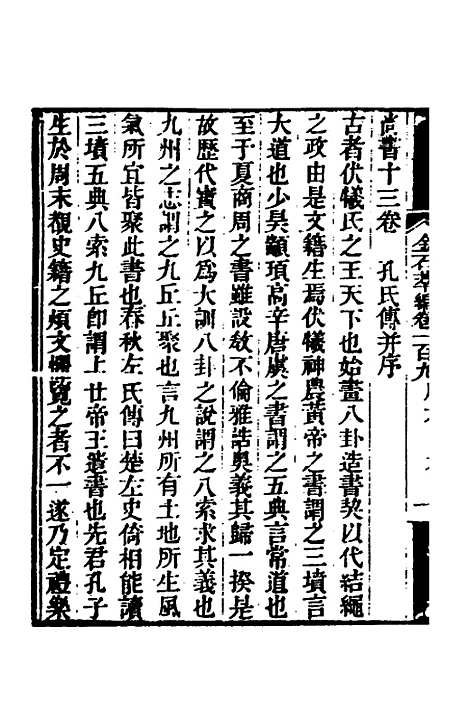 金石萃編卷一百九
尚書十三卷　孔氏傳并序
古者伏犧氏之王天下也始畫八卦造書契以代結繩
之政由是文籍生焉伏犧神農黃帝之書謂之三墳言
大道也少昊顓頊高辛唐虞之書謂之五典言常道也
至于夏商周之書雖設敎不倫雅誥奧義其歸一揆是
故歷代寳之以爲大訓八卦之說謂之八索求其義也
九州之志謂之九丘丘聚也言九州所有土地所生風
氣所宜皆聚此書也春秋左氏傳曰楚左史倚相能讀
三墳五典八索九丘卽謂上世帝王遺書也先君孔子
生於周末覩史籍之煩文懼覽之者不一遂乃定禮樂